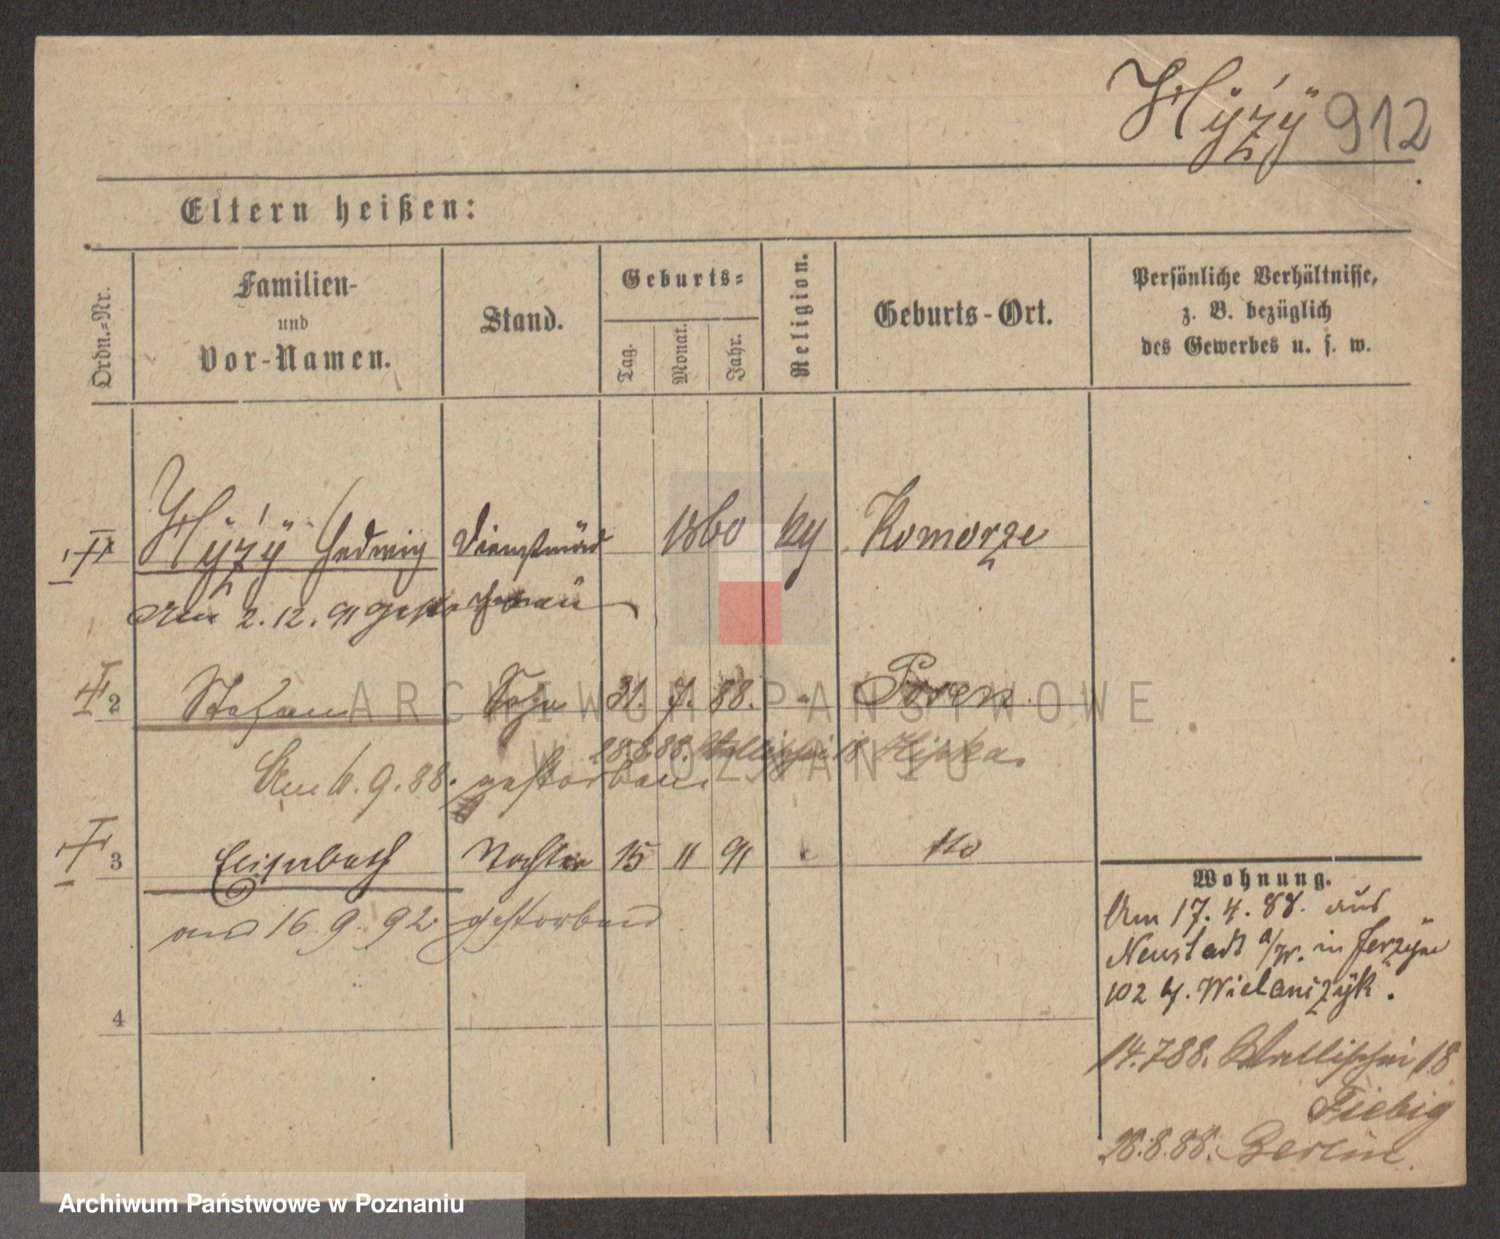 Hÿżÿ 912
Eltern heißen:
Ordn.-Nr.
Familien-
und
Vor-Namen.
Stand.
Geburts-
Tag.
Monat.
Jahr.
Religion.
Geburts-Ort.
Persönliche Verhältnisse,
z. B. bezüglich
des Gewerbes u. s. w.
Hÿżÿ Hedwig 1860 Komorze
Am 2.12.91
2 Stefan Sohn 31. 7. 88. Posen
28.8.88. Wallischei 18
Am 6.9.88. gestorben.
3 Elisabeth Tochter 15 11 91 do
am 16.9.92 gestorben
4
Wohnung.
Am 17.4.88. aus
Neustadt a/W. in Jerzÿce
102 b/. Wielanczÿk.
14.7.88. Wallischei 18
Fiebig
28.8.88. Berlin.
ARCHIWUM PAŃSTWOWE
W POZNANIU
Archiwum Państwowe w Poznaniu